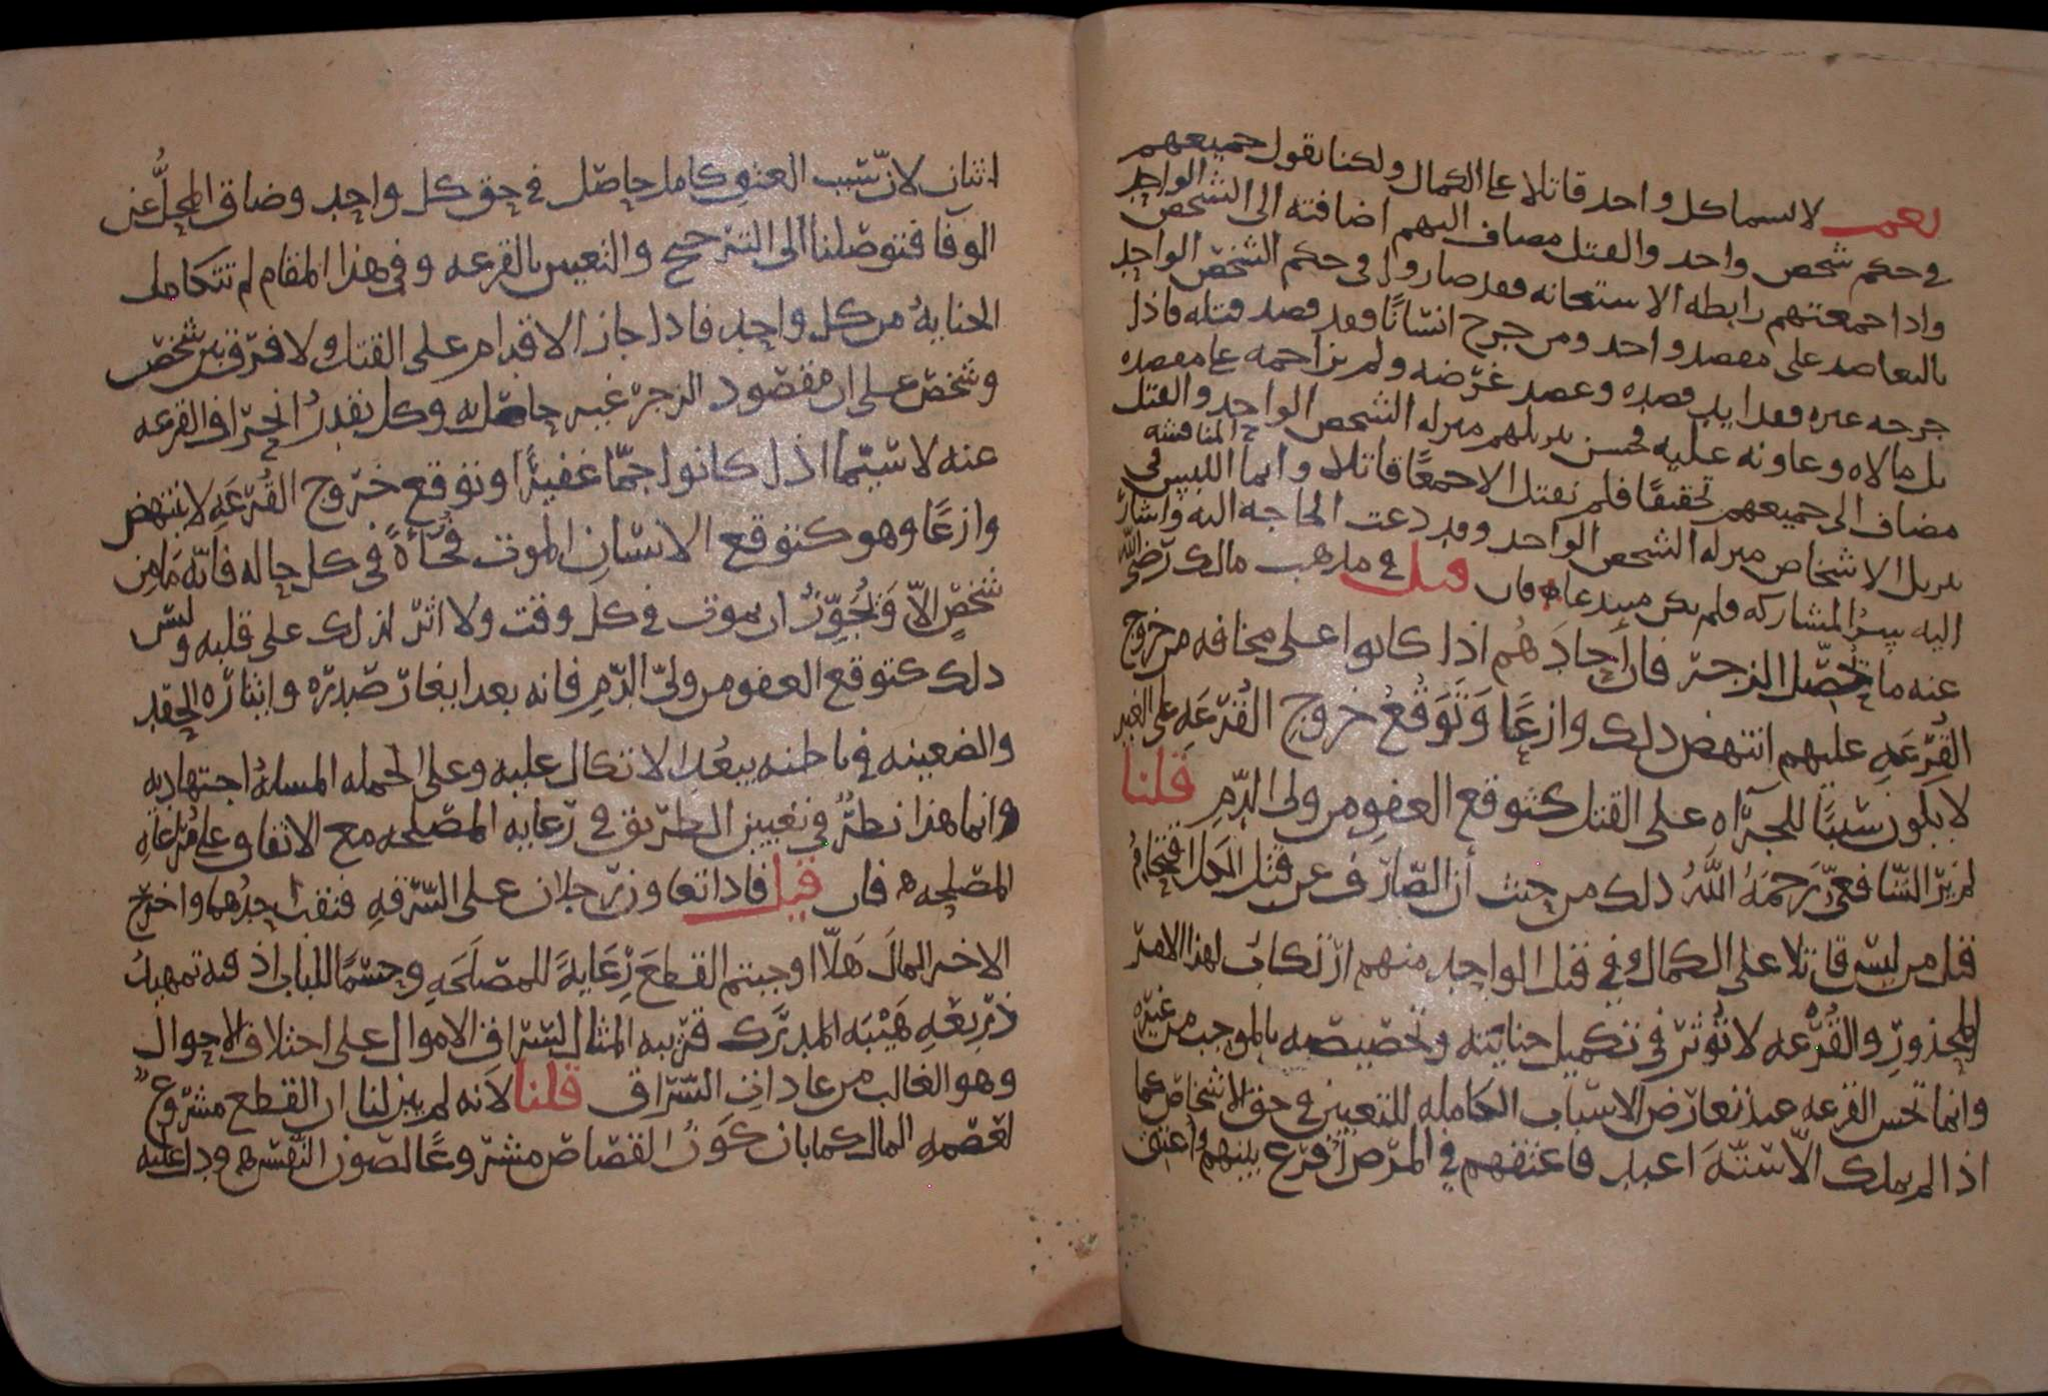 نعم لا نسما كل واحد قاتلا على الكمال ولكنا نقول جميعهم
في حكم شخص واحد والقتل مضاف اليهم اضافته الى الشخص الواحد
واذا جمعتهم رابطه الاستعانه فقد صاروا في حكم الشخص الواحد
بالتعاضد على مقصد واحد ومن جرح انسانًا فقد قصد قتله فاذا
جرحه غيره فقد ايد قصده وعضد غرضه ولم يزاحمه على مقصده
بل مالاه وعاونه عليه فحسن تنزيلهم منزله الشخص الواحد والقتل
مضاف الى جميعهم تحقيقًا فلم نقتل الا جمعًا قاتلا وانما اللبس في المناقشه
تنزيل الاشخاص منزله الشخص الواحد وقد دعت الحاجه اليه واشار
اليه سرُّ المشاركه فلم يكن مبتدعا فان قيل في مذهب مالك رضي الله
عنه ما يحصّل الزجر فان احادَهُم اذا كانوا على مخافه من خروج
القُرعَهِ عليهم انتهض ذلك وازعًا وَتَوَقُّعُ خروجِ القُرعَهِ على الغير
لا يكون سببًا للجرآه على القتل كتوقع العفو من ولى الدّمِ قلنا
لم يَرَ الشّافعىّ رَحمَهُ اللَّهُ ذلك من حيث أن الصّارف عن قتل الكل اقتحامُ
قتل من ليس قاتلا على الكمال وفي قتل الواحد منهم ارتكابٌ لهذا الامر
المحذورِ والقُرعه لا تُوثر في تكميل جنايته وتخصيصه بالموجب من غيره
وانما تحسن القرعه عند تعارض الاسباب الكامله للتعيين في حق الاشخاص كما
اذا لم يملك الّا ستّهَ اعبد فاعتقهم في المرض أُقرع بينهم وأعتق
اثنان لانّ سَبَب العتق كامل حاصل في حق كل واحد وضاق المحلُّ عن
الوفآ فتوصلنا الى الترجيح والتعيين بالقرعه وفي هذا المقام لم تتكامل
الجنايةُ من كل واحد فاذا جاز الاقدام على القتل ولا فرق بين شخص
وشخص على ان مقصود الزجر غير حاصل به وكل يقدرُ انحراف القرعه
عنه لا سيّما اذا كانوا جمّا غفيرًا وتوقع خروج القُرعَهِ لا ينتهض
وازعًا وهو كتوقع الانسان الموت فُجأةً في كل حاله فانّه مَا مِن
شخصٍ الّا وَيُجَوِّزُ ان يموت في كل وقت ولا اثر لذلك على قلبه وليس
ذلك كتوقع العفو من ولىّ الدّمِ فانه بعد ايغار صدره واثاره الحقد
والضغينه في باطنه يبعُد الاتكال عليه وعلى الجمله المسلهُ اجتهاديه
وانما هذا نظرٌ في تعيين الطريق في رعايه المصلحه مع الاتفاق على مُراعاه
المصلحه فان قيل فاذا تعاون رجلان على السّرقهِ فنقب احدُهما واخرج
الاخر المالَ هَلّا اوجبتم القطعَ رِعَايةً للمصلَحَهِ وحسمًا للباب اذ فيه تمهيدُ
ذَريعَهٍ هَيْنَه المدرَك قريبه المثال لسُرّاق الاموال على اختلاف الاحوال
وهو الغالب من عادات السّراق قلنا لانه لم يبن لنا ان القطع مشروعٌ
لعَصمهِ المال كما بان كَونُ القصاص مشروعًا لصون النّفس ودل عليه